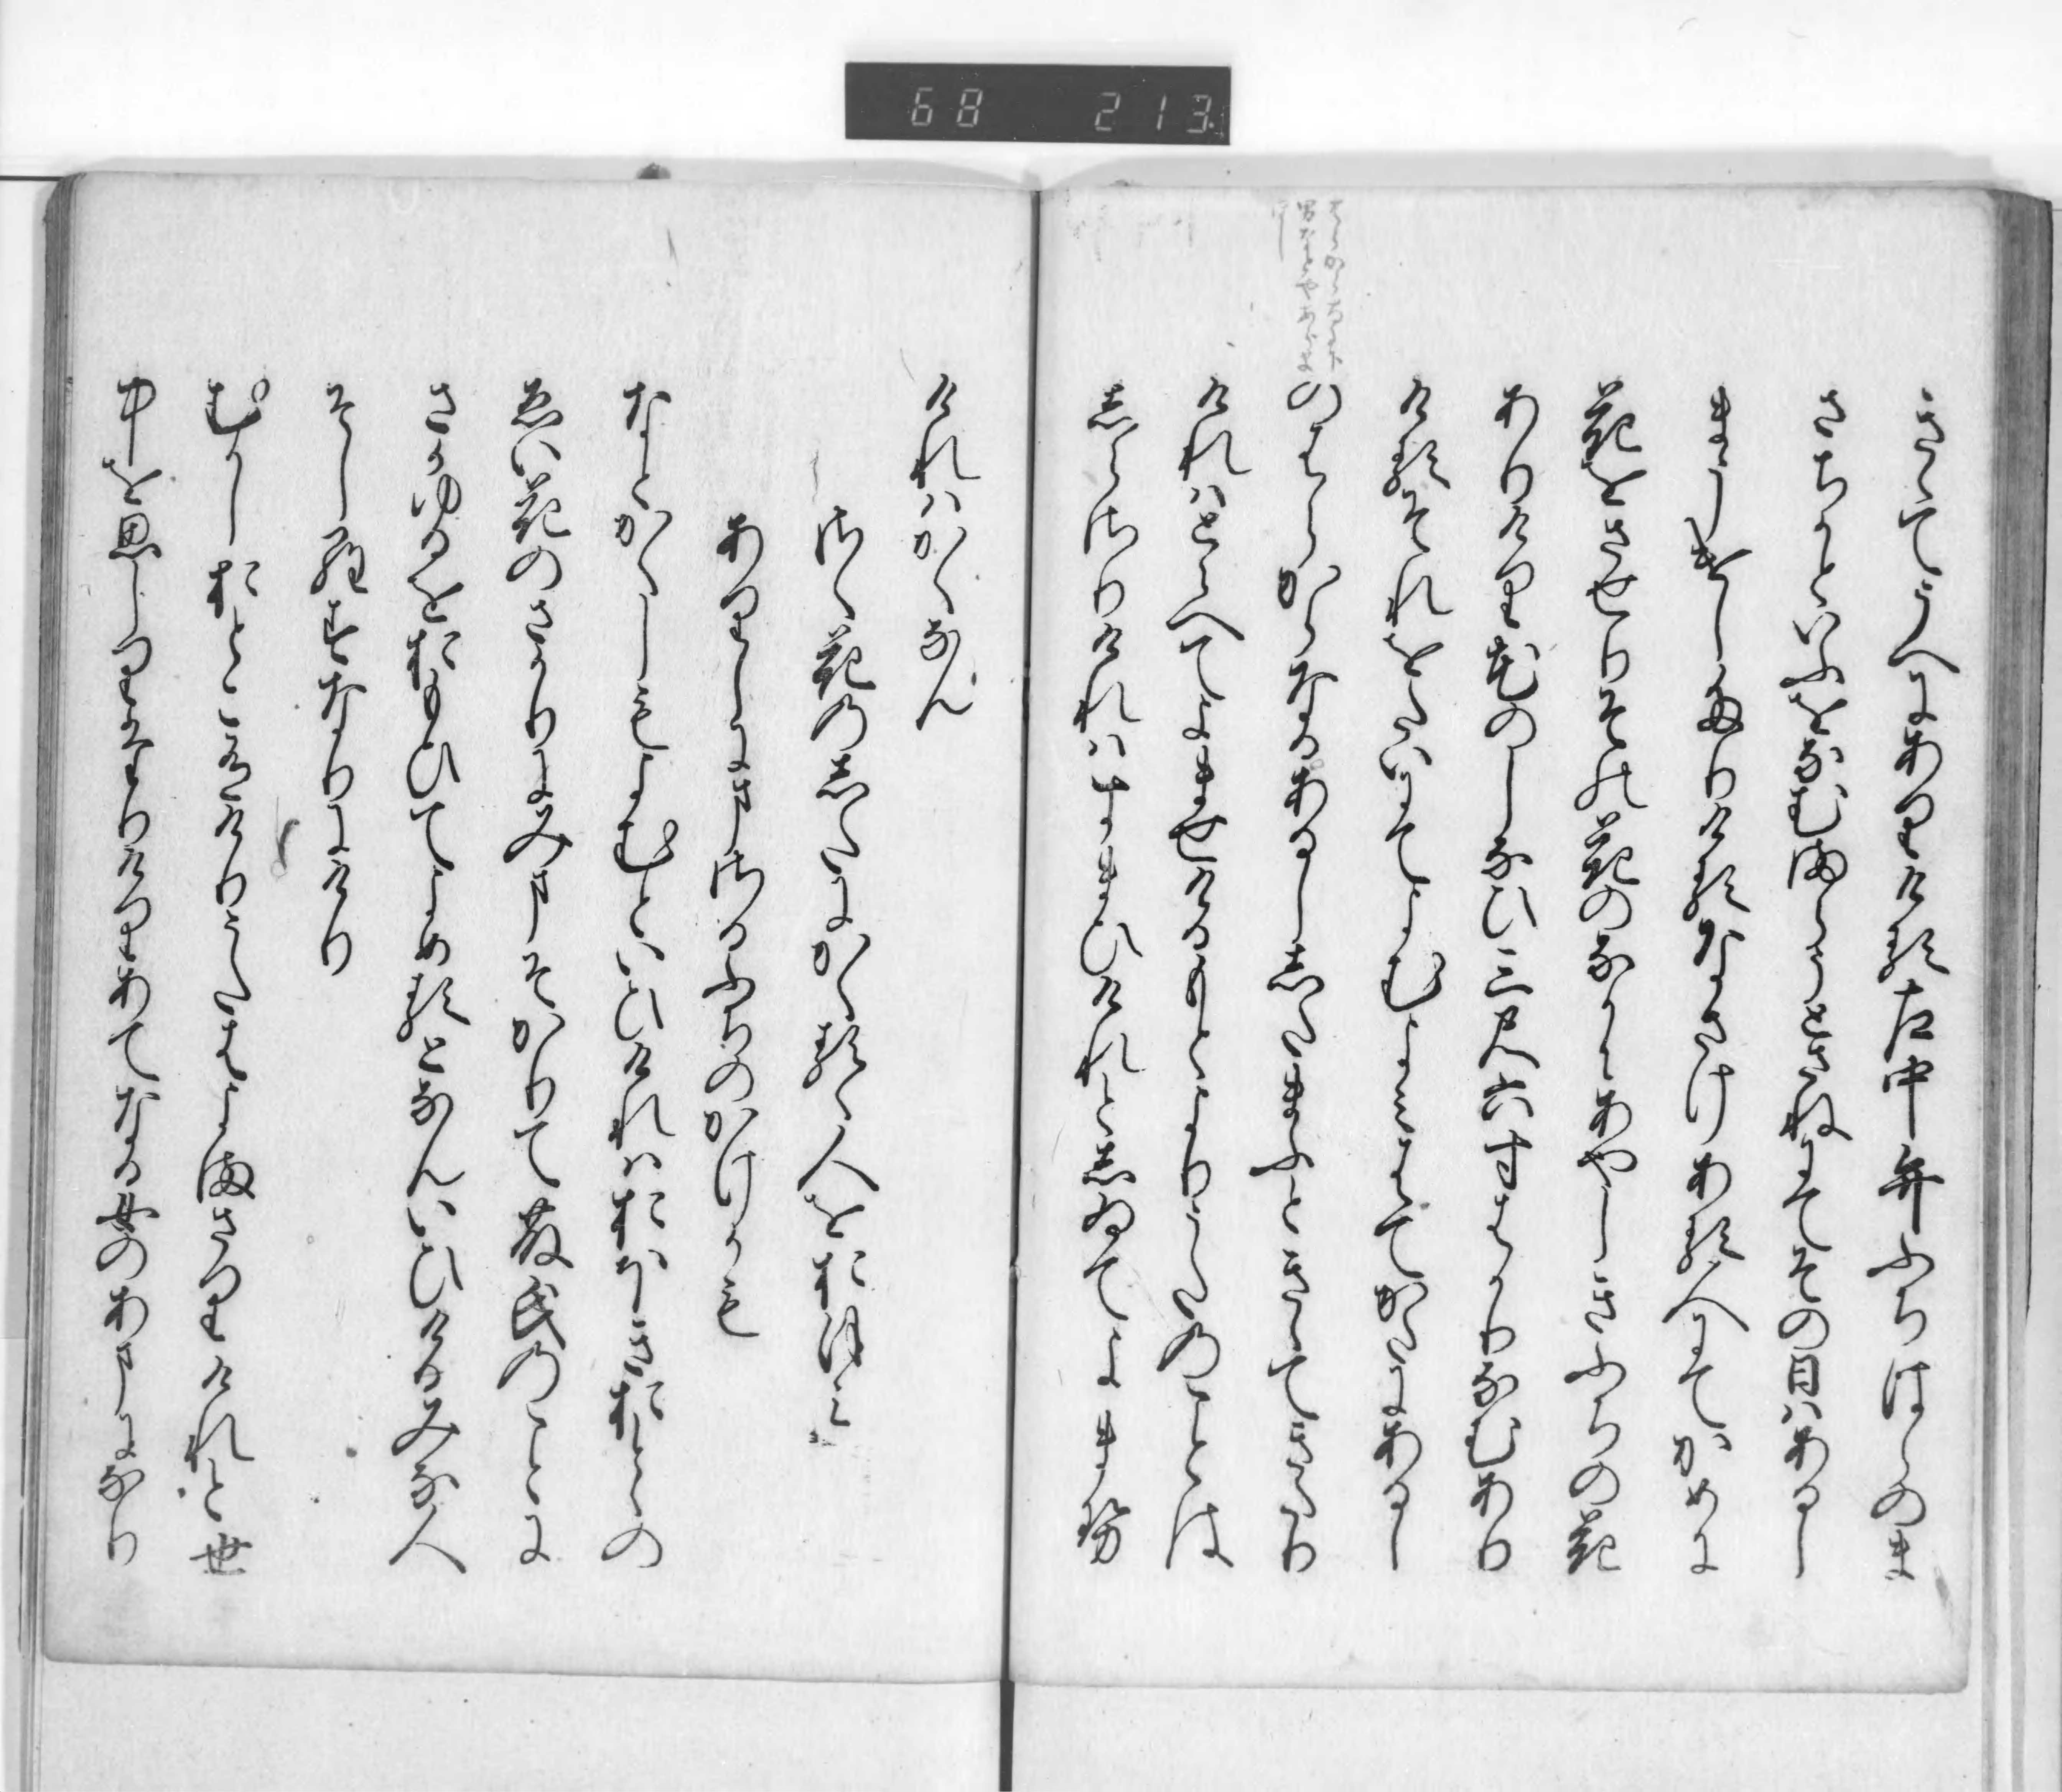 68 213
きゝてうへにありける左中弁ふちはらのま
さちかといふをなむまらうとさねにてその日はあるし
まうけしたりけるなさけある人にてかめに
花をさせりその花のなかにあやしきふちの花
ありけり花のしなひ三尺六寸はかりなむあり
けるそれをたいにてよむよみはてかたにあるし
のはらからなるあるしゝたまふときゝてきたり
けれはとらへてよませけるもとよりうたのことは
しらさりけれはすまひけれとしゐてよませ
けれはかくなん
さく花のしたにかくるゝ人をおほみ
ありしにまさるふちのかけかも
なとかくしもよむといひけれはおほきおとゝの
ゑい花のさかりにみまそかりて藤氏のことに
さかゆるをおもひてよめるとなんいひけるみな人
そしらすなりにけり
むかしおとこ有けりうたはよまさりけれと世
中を思しりたりけりあてなる女のあまになり